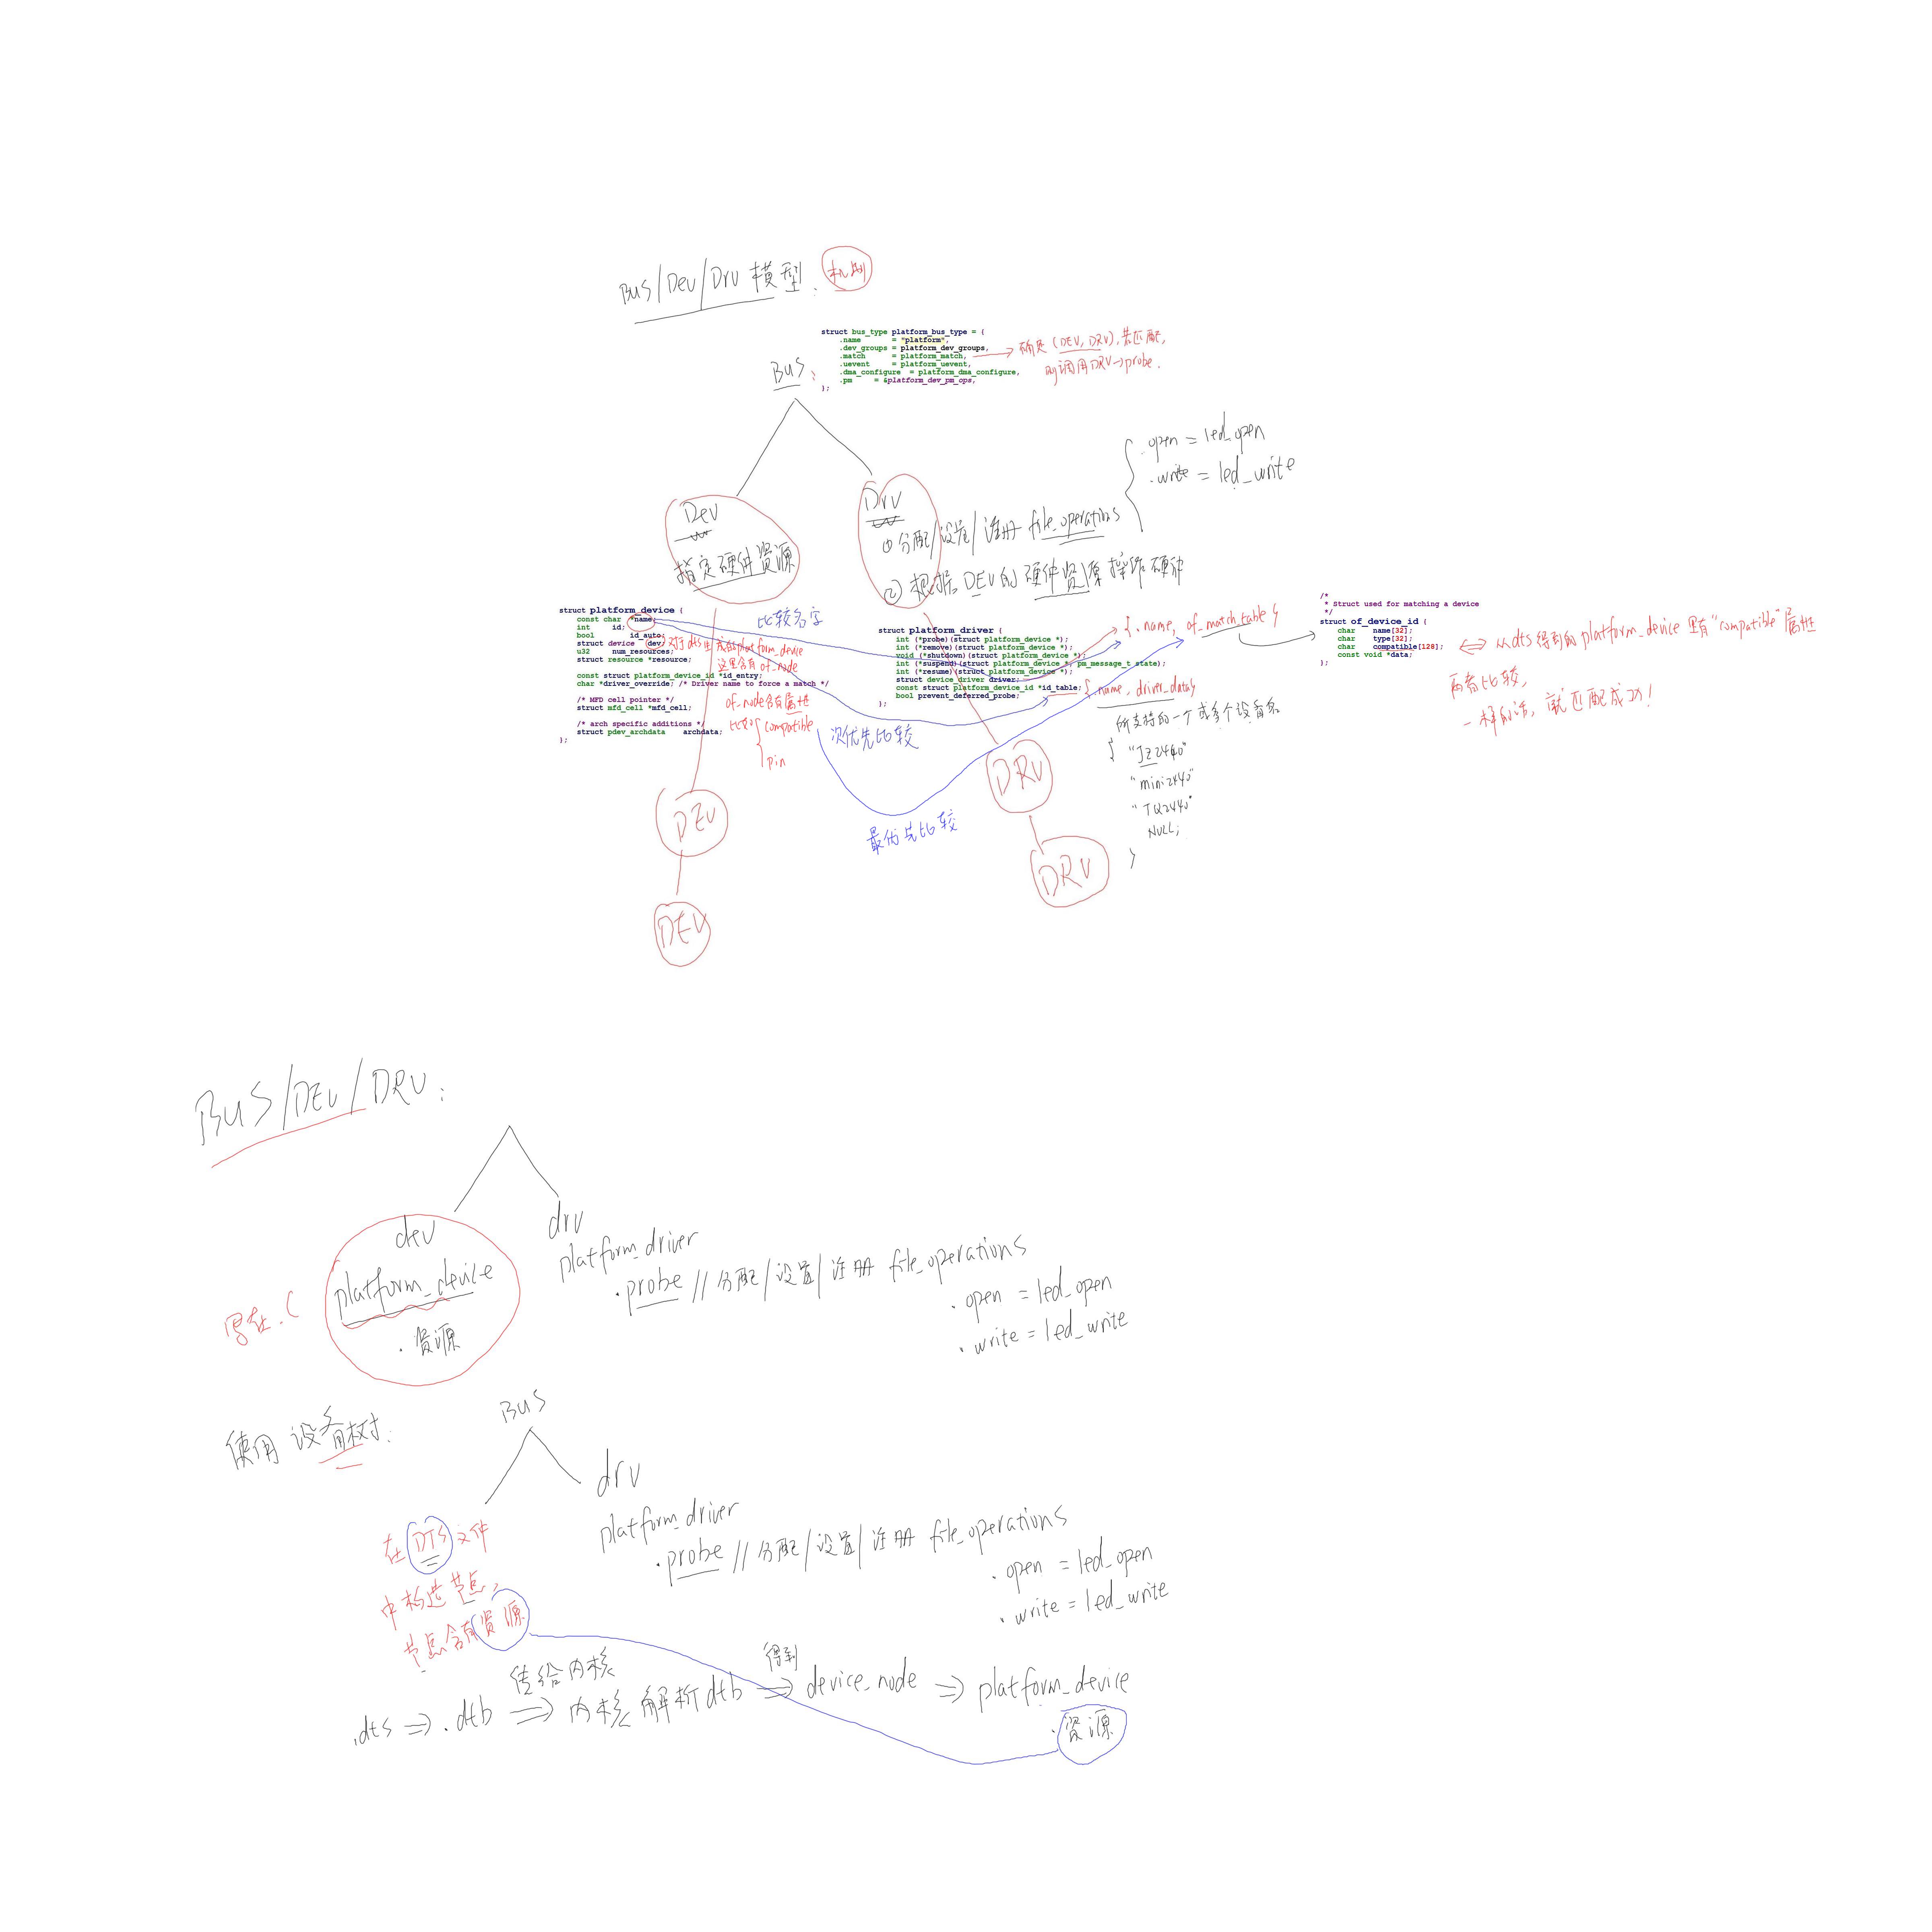 BUS/Dev/Drv 模型: 机制
struct bus_type platform_bus_type = {
.name = "platform",
.dev_groups = platform_dev_groups,
.match = platform_match,
.uevent = platform_uevent,
.dma_configure = platform_dma_configure,
.pm = &platform_dev_pm_ops,
};
确定(DEV, DRV), 若匹配,
则调用DRV→probe.
BUS:
Dev
指定硬件资源
Drv
①分配/设置/注册 file_operations
②根据DEV的硬件资源操作硬件
.open = led_open
.write = led_write
struct platform_device {
const char *name;
int id;
bool id_auto;
struct device dev;
u32 num_resources;
struct resource *resource;
const struct platform_device_id *id_entry;
char *driver_override; /* Driver name to force a match */
/* MFD cell pointer */
struct mfd_cell *mfd_cell;
/* arch specific additions */
struct pdev_archdata archdata;
};
对于dts生成的platform_device
这里含有of_node
of_node含有属性
比如{compatible
pin
比较名字
次优先比较
最优先比较
struct platform_driver {
int (*probe)(struct platform_device *);
int (*remove)(struct platform_device *);
void (*shutdown)(struct platform_device *);
int (*suspend)(struct platform_device *, pm_message_t state);
int (*resume)(struct platform_device *);
struct device_driver driver;
const struct platform_device_id *id_table;
bool prevent_deferred_probe;
};
{.name, of_match_table}
{name, driver_data}
所支持的一个或多个设备名
{ "JZ2440"
"mini2440"
"TQ2440"
NULL;
}
/*
* Struct used for matching a device
*/
struct of_device_id {
char name[32];
char type[32];
char compatible[128];
const void *data;
};
⇔ 从dts得到的platform_device里有"compatible"属性
两者比较,
一样的话, 就匹配成功!
DEV
DEV
DRV
DRV
BUS/DEV/DRV:
dev
platform_device
.资源
写在.C
drv
platform_driver
.probe // 分配/设置/注册 file_operations
.open = led_open
.write = led_write
使用设备树:
BUS
在DTS文件
中构造节点,
节点含有资源
drv
platform_driver
.probe // 分配/设置/注册 file_operations
.open = led_open
.write = led_write
传给内核
得到
.dts ⇒ .dtb ⇒ 内核解析dtb ⇒ device_node ⇒ platform_device
.资源